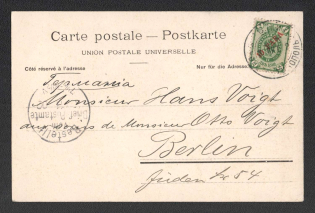 Carte postale — Postkarte
UNION POSTALE UNIVERSELLE
Côté réservé à l'adresse
Nur für die Adresse
Германія
Monsieur Hans Voigt
aux soins de Monsieur Otto Voigt
Berlin
Jüdenstr 54
Bestellt
vom
Postamte